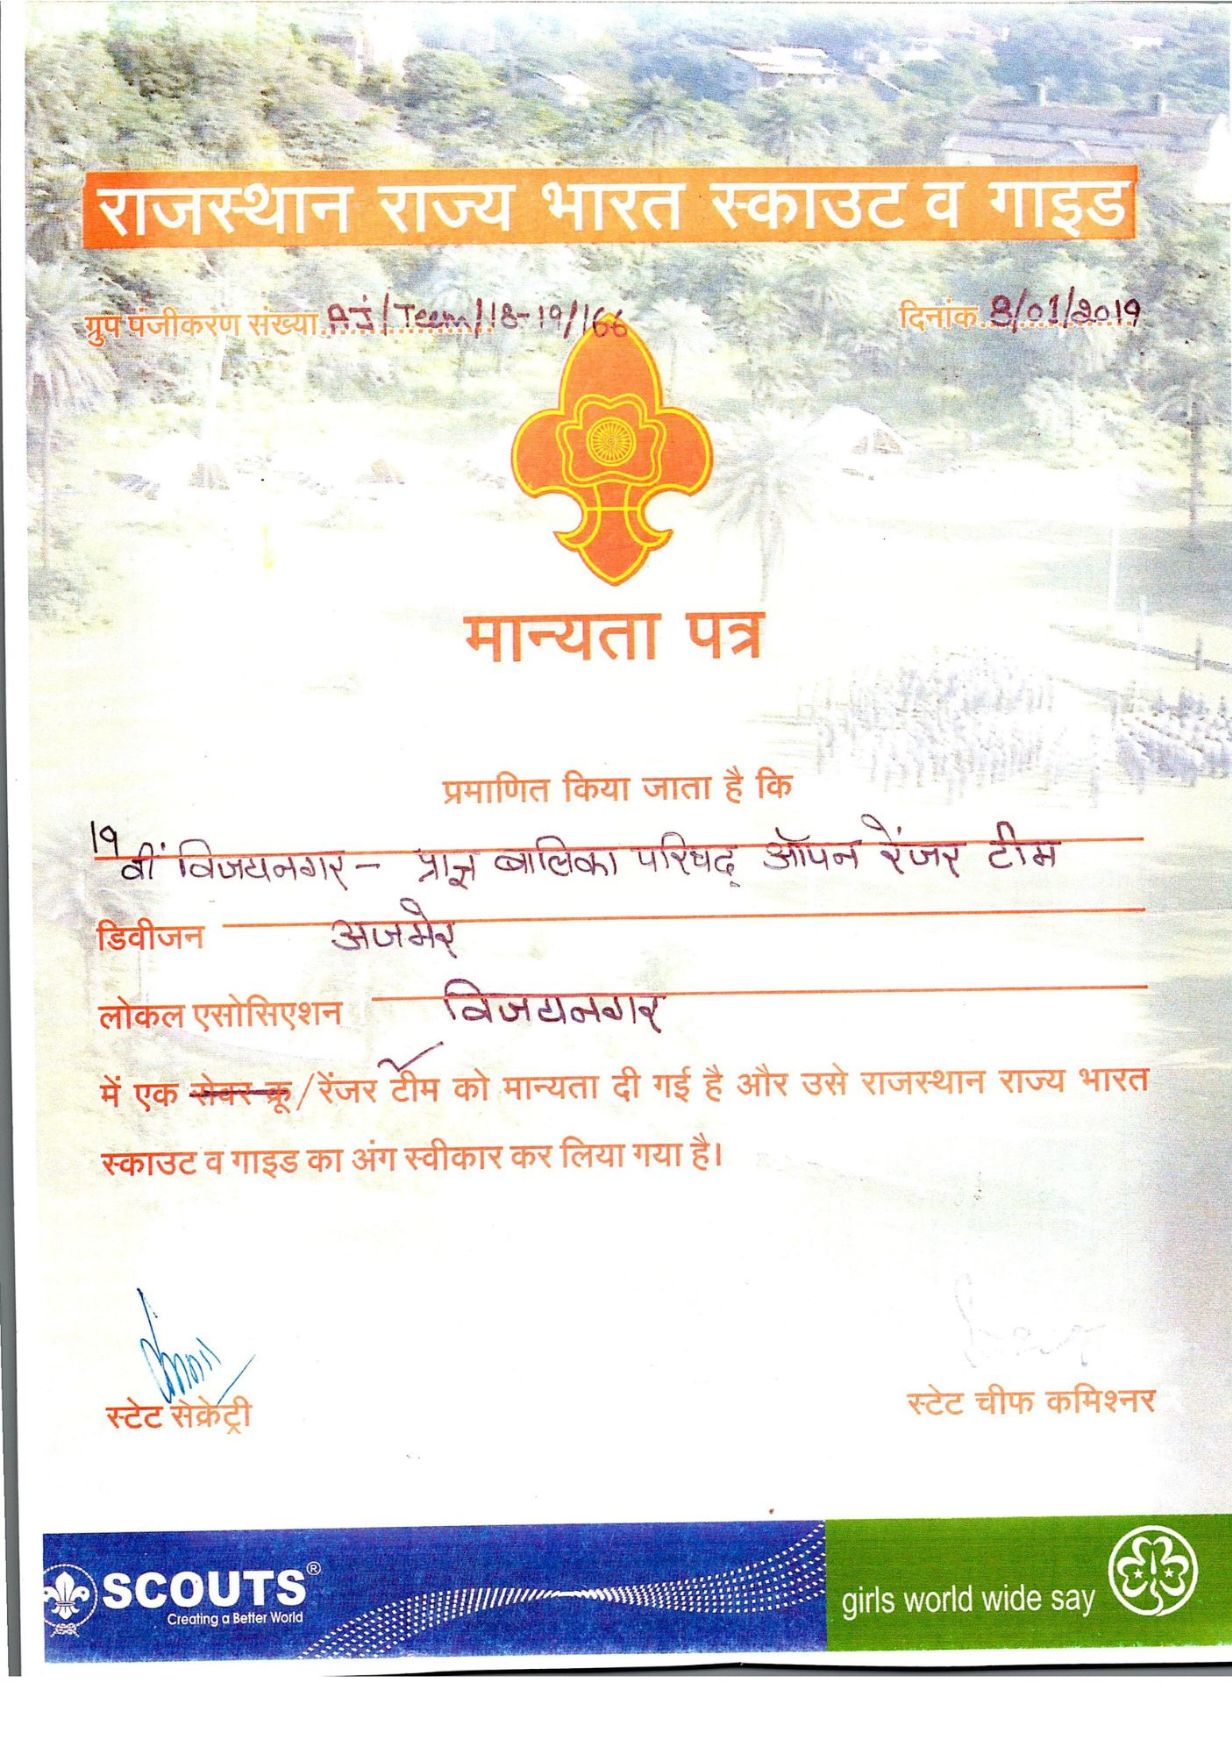 राजस्थान राज्य भारत स्काउट व गाइड
ग्रुप पंजीकरण संख्या AJ/Team/18-19/166 दिनांक 8/01/2019
मान्यता पत्र
प्रमाणित किया जाता है कि
19 वीं विजयनगर - प्राज्ञ बालिका परिषद् ऑपन रेंजर टीम
डिवीजन अजमेर
लोकल एसोसिएशन विजयनगर
में एक रोवर क्रू/रेंजर टीम को मान्यता दी गई है और उसे राजस्थान राज्य भारत
स्काउट व गाइड का अंग स्वीकार कर लिया गया है।
स्टेट सेक्रेट्री स्टेट चीफ कमिश्नर
SCOUTS®
Creating a Better World
girls world wide say